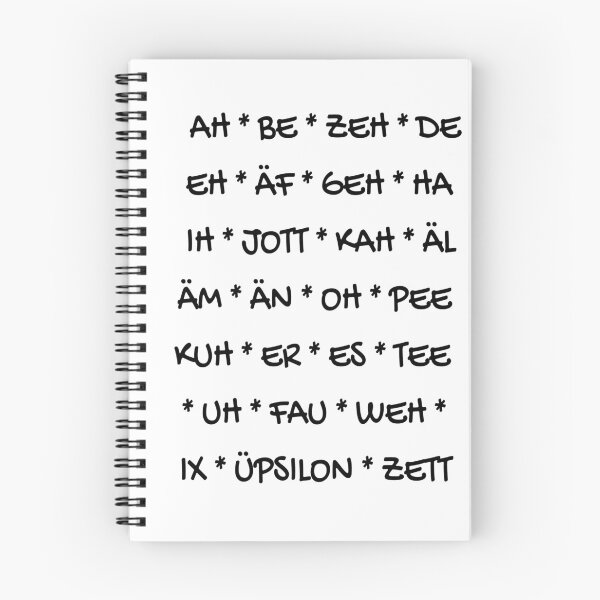 AH * BE * ZEH * DE
EH * ÄF * GEH * HA
IH * JOTT * KAH * ÄL
ÄM * ÄN * OH * PEE
KUH * ER * ES * TEE
* UH * FAU * WEH *
IX * ÜPSILON * ZETT